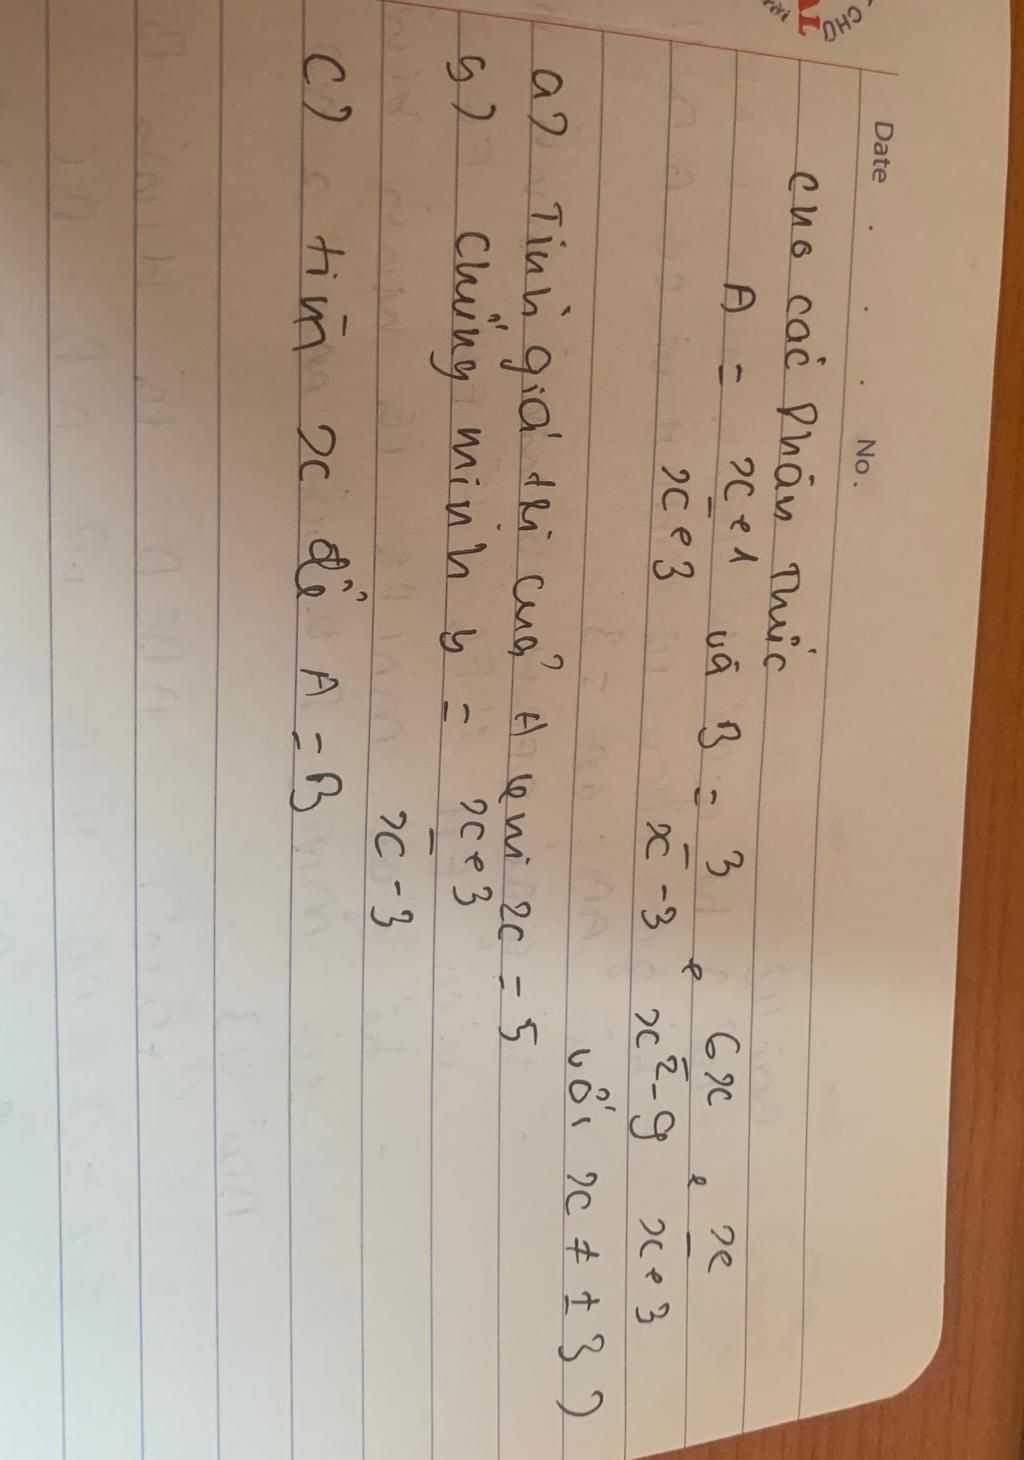 Date No.
cho các phân thức
A = x+1 và B = 3 + 6x + x
x+3 x-3 x²-9 x+3
với x ≠ ±3)
a) Tính giá trị của A khi x = 5
b) Chứng minh b = x+3
x-3
c) tìm x để A = B